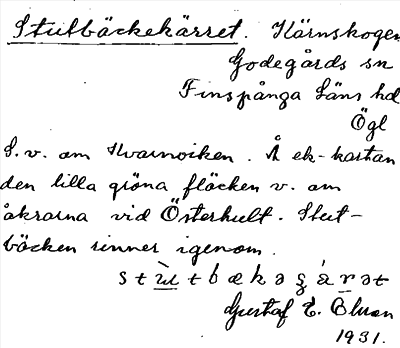 Stutbäckekärret. Kärnskogen
Godegårds sn
Finspånga Läns hd
Ögl
S.v. om Kvarnviken. Å ek-kartan
den lilla gröna fläcken v. om
åkrarna vid Österhult. Stut-
bäcken rinner igenom.
Gustaf E.
1931.